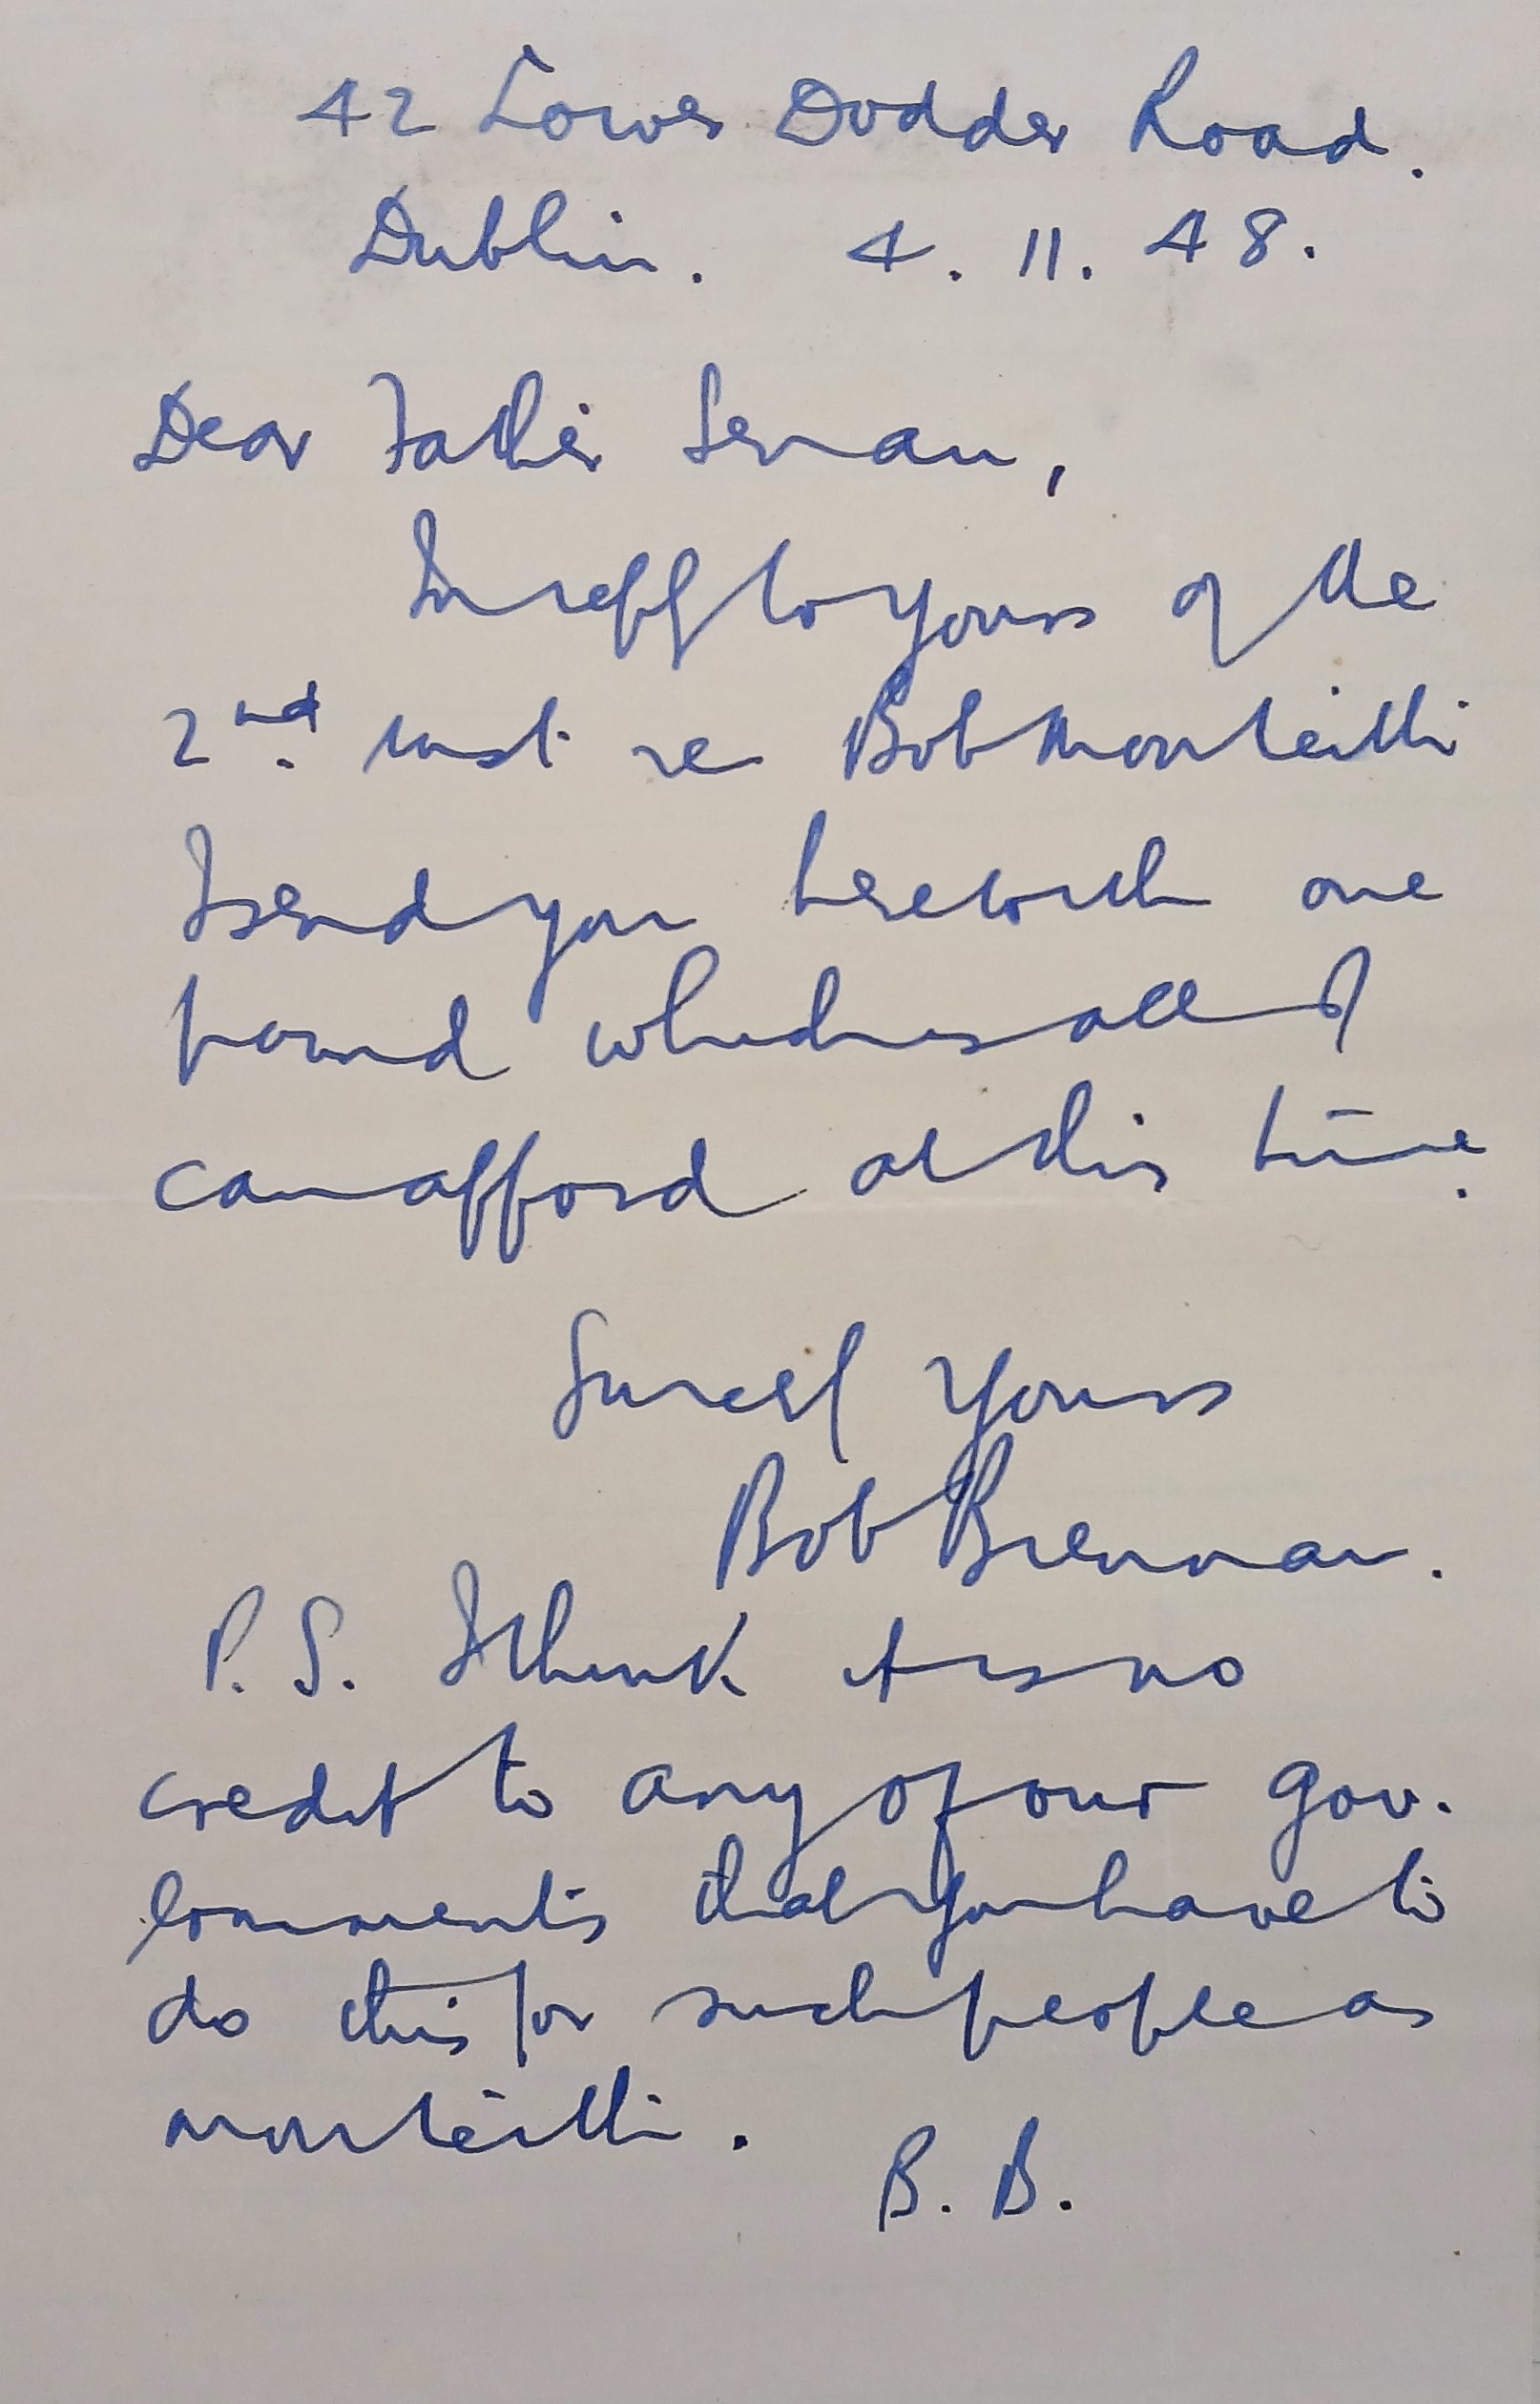 42 Lower Dodder Road.
Dublin. 4. 11. 48.
Dear Father Senan,
In reply to yours of the
2nd. inst. re Bob Monteith
I send you herewith one
pound which is all I
can afford at this time.
Sincerely Yours
Bob Brennan.
P.S. I think it is no
credit to any of our gov.
ernments that you have to
do this for such people as
Monteith.
B. B.